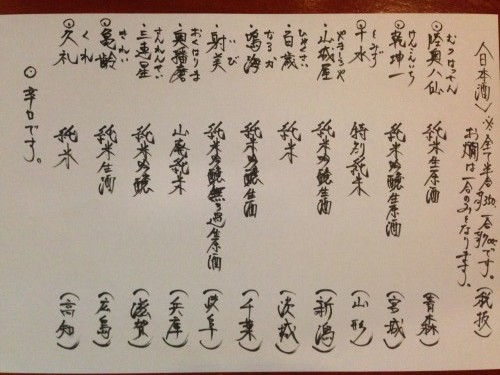 〈日本酒〉※全て半合¥350、一合¥700です。(税抜)
お燗は一合のみとなります。
むつはっせん
・陸奥八仙 純米生原酒 (青森)
けんこんいち
・乾坤一 純米吟醸生原酒 (宮城)
特別純米 (山形)
やましろや
・山城屋 純米吟醸生酒 (新潟)
ひゃくさい
・百歳 純米 (茨城)
なるか
・鳴海 純米吟醸生酒 (千葉)
いび
・射美 純米吟醸無ろ過生原酒 (岐阜)
おくはりま
・奥播磨 山廃純米 (兵庫)
さんれんせい
・三連星 純米吟醸 (滋賀)
きれい
・亀齢 純米生酒 (広島)
くれ
・久礼 純米 (高知)
○辛口です。